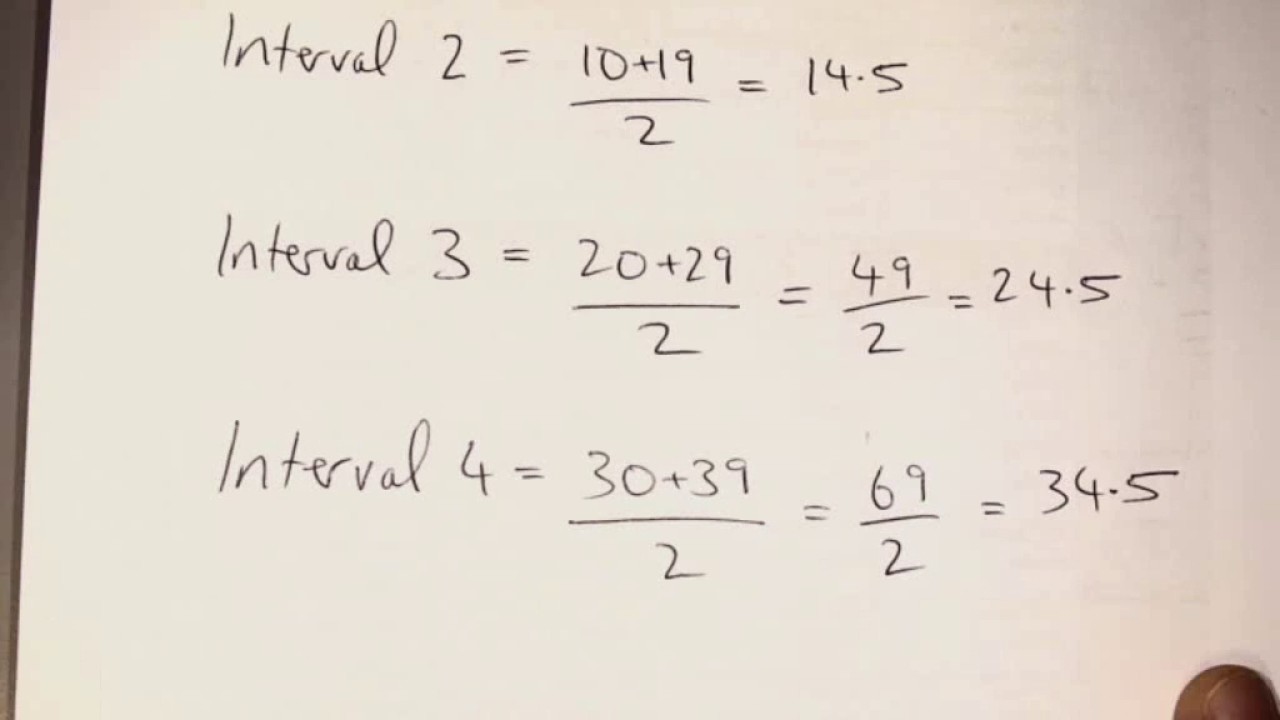 Interval 2 = 10+19/2 = 14.5
Interval 3 = 20+29/2 = 49/2 = 24.5
Interval 4 = 30+39/2 = 69/2 = 34.5